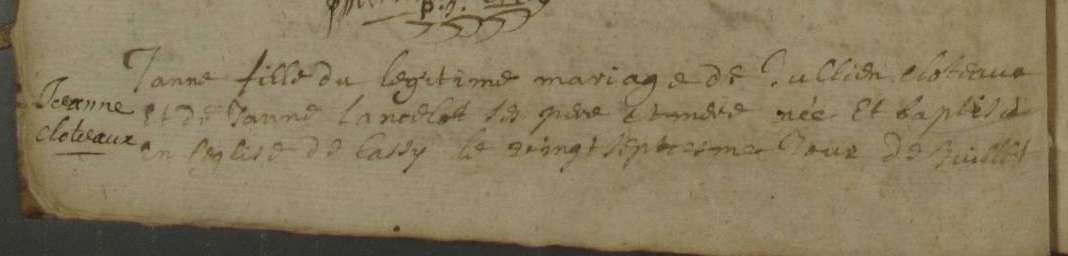 Janne fille du legitime mariage de Jullien cloteaux
Jeanne
cloteaux
Et de Janne lancelot ses pere et mere née Et baptisée
en leglise de Cassy le vingt septiesme Jour de Juillet